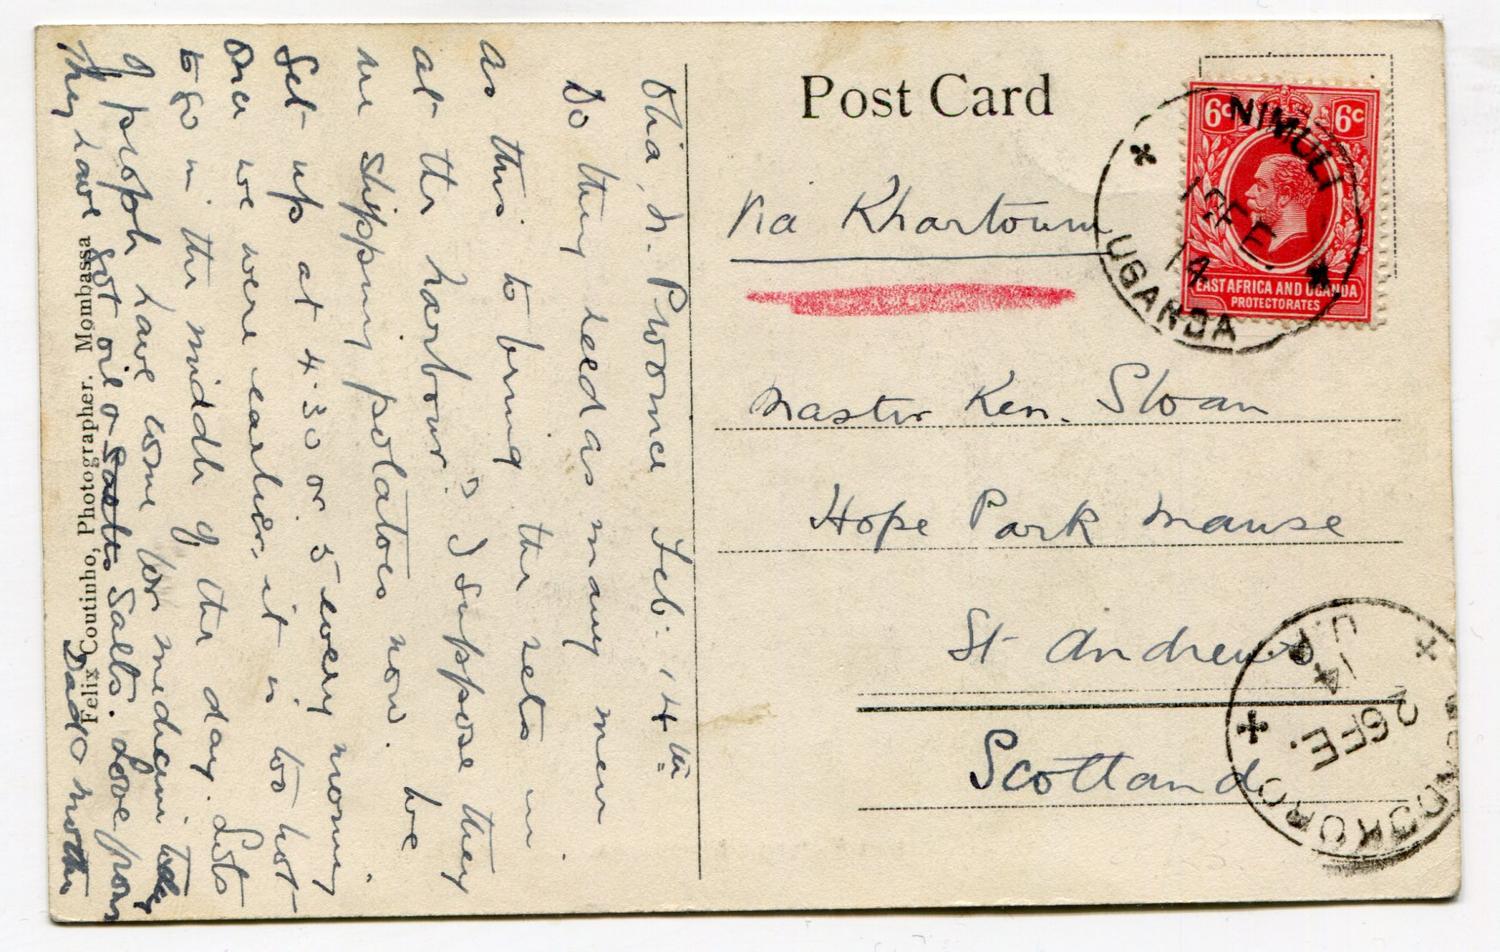 Post Card
6c 6c
EAST AFRICA AND UGANDA
PROTECTORATES
NIMULI
1 FE.
14
UGANDA
Via Khartoum
Master Ken. Sloan
Hope Park Manse
St Andrews
Scotland
GONDOKORO
26 FE.
14
U.P.
N. Province Feb. 14th
Do they need as many men
as this to bring the nets in
at the harbour? I suppose they
are shipping potatoes now. We
Get up at 4.30 or 5 every morning
Once we were earlier, it is too hot
to go in the middle of the day. Lots
of people have come for medicine today
They have got oil or Salts Salts. Love from
Dad & mother
Felix Coutinho, Photographer. Mombassa